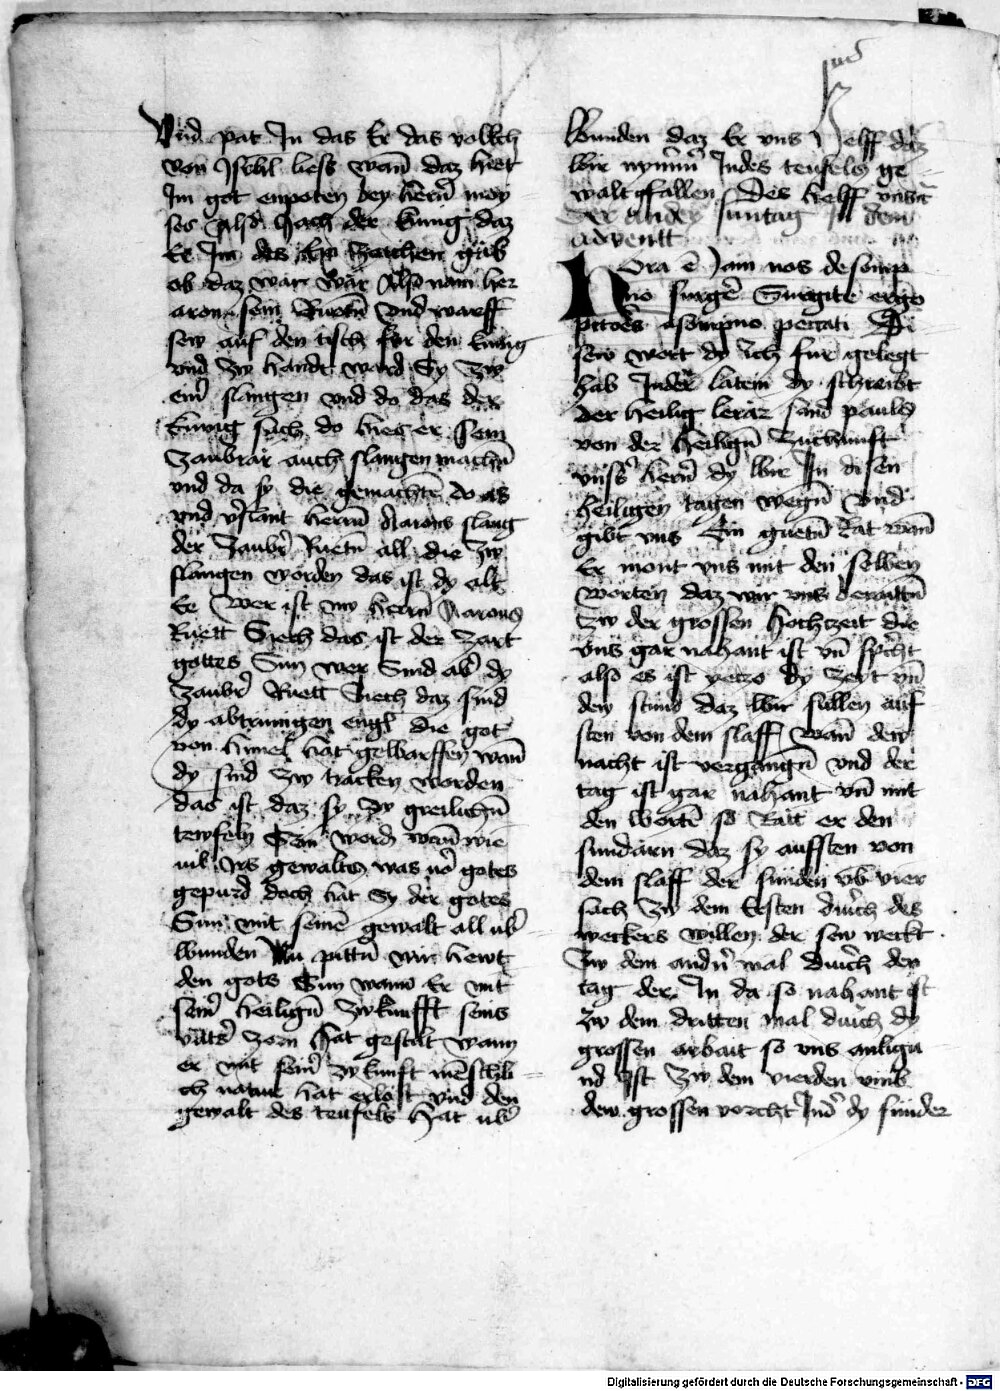 Vnd pat In das Er das vollkch
von Israhl liess wan̄ daz hiet
Im got enpoten bey hern̄ moy
ses Also sach der kunig daz
Er Im des Ein zaichen gäb
ob daz war wär Also nam her
aron sein Ruetn̄ vnd warff
sew auf den tisch für den kunig
vnd zw handt ward Sy zw
ein̄ slangen vnd do das der
kunig sach do hies er sein
zaubrär auch slangen machn̄
vnd da sy die gemachtē do as
vnd vslant herrn̄ Aarons slang
der zaubr̄ Ruetn̄ all die zw
slangen worden das ist dy alt
Ee Wer ist nw herrn̄ Aarons
Ruett Siech das ist der zart
gottes Sun wer Sind ab̄ dy
zaubr̄ Ruett Siech daz sind
dy abtrunigen engl̄ die got
von himel hat geworffen wan̄
dy sind zw tracken worden
das ist daz sy zw greilichn̄
tewfeln Sein word wan̄ wie
uil Irs gewaltes was vo gotes
gepurd doch hat Sy der gotes
Sun mit seinē gewalt all ub̄
wunden Nu pittn̄ wir hewt
den gots Sun wann Er mit
sein̄ heilign̄ zwkunfft seins
vats̄ zorn hat gestilt wann
er mit sein̄ zwkunft mēschli
ch natur hat erlöst vnd den
gewalt des teufels hat ub̄
wunden daz Er vns helff daz
wir nymm̄ Indes teufels ge
walt gfallen Des helff vns
Der Ander suntag In dem
adventt
Hora ē Jam nos de somp
no surge Surgite ergo
pctōes a sompno peccati Di
sew wort dy ich fur gelegt
hab Inder latein dy schreibt
der heilig lerär sand pauls
von der heilign̄ zuchunft
vnss̄ hern̄ dy wir In disen
heiligen tagen wegn̄ vnd
gibt vns Ein guetn̄ Rat wan̄
Er mont vns mit den selben
worten daz wir vns beraittn̄
zw der grossen hochzeit die
vns gar nahant ist vn̄ spricht
also es ist yeczo dy zeyt vn̄
dew stund daz wir sullen auf
sten von dem slaff wan̄ dew
nacht ist vergangn̄ vnd der
tag ist gar nahant vn̄ mit
den wortē so Rātt er den
sundärn daz sy auffsten von
dem slaff der sunden vb vier
sach zw dem Ersten durch des
weckers willen der sew weckt
zw dem andn̄ mal durch den
tag der In da so nahant ist
zw dem dritten mal durch dy
grossen arbait so vns anligu
nd ist zw dem vierden vmb
dew grossen vorcht Ind̄ dy sunder
Digitalisierung gefördert durch die Deutsche Forschungsgemeinschaft - DFG